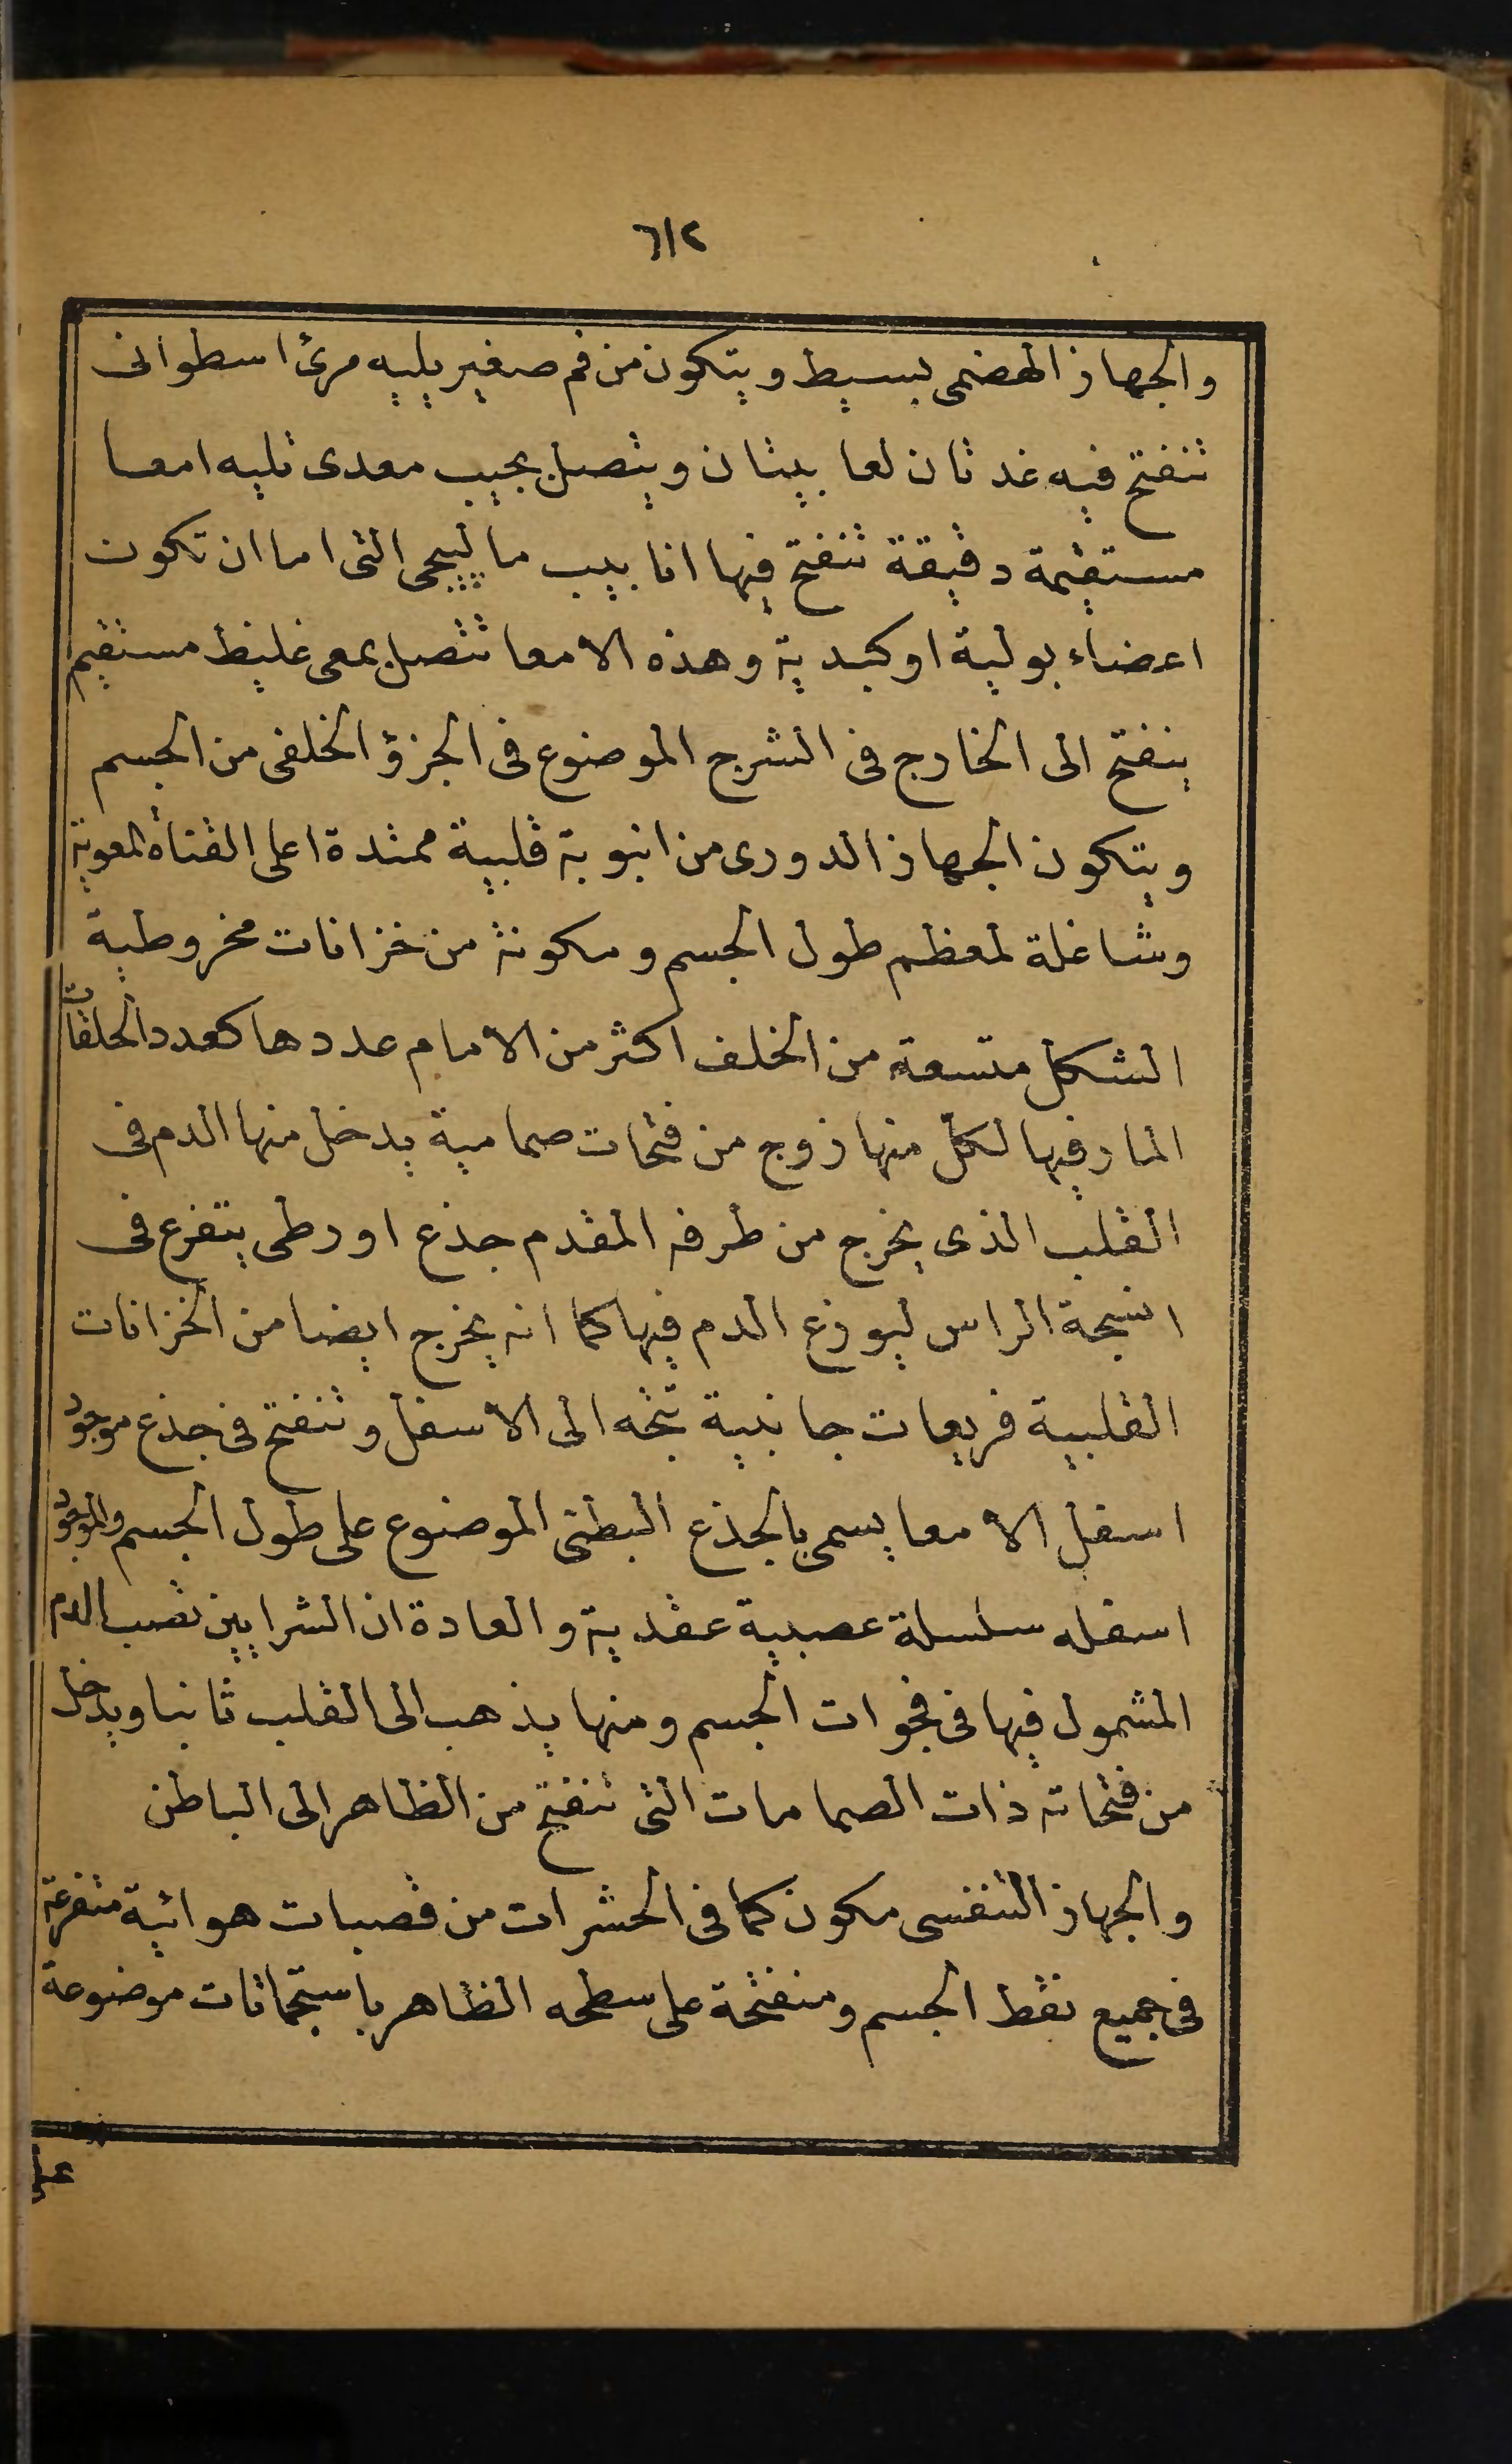 ٦١٢
والجهاز الهضمى بسيط ويتكون من فم صغير يليه مرئ اسطوانى
تنفتح فيه غدتان لعابيتان ويتصل بجيب معدى تليه امعا
مستقيمة دقيقة تنفتح فيها انابيب مالپيجى التى اما ان تكون
اعضاء بولية او كبدية وهذه الامعا تتصل بمعى غليظ مستقيم
ينفتح الى الخارج فى الشرج الموضوع فى الجزؤ الخلفى من الجسم
ويتكون الجهاز الدورى من انبوبة قلبية ممتدة اعلى القناة المعوية
وشاغلة لمعظم طول الجسم ومكونة من خزانات مخروطية
الشكل متسعة من الخلف اكثر من الامام عددها كعدد الحلقات
المار فيها لكل منها زوج من فتحات صمامية يدخل منها الدم فى
القلب الذى يخرج من طرفه المقدم جذع اورطى يتفرع فى
انسجة الراس ليوزع الدم فيها كما انه يخرج ايضا من الخزانات
القلبية فريعات جانبية تتجه الى الاسفل وتنفتح فى جذع موجود
اسفل الامعا يسمى بالجذع البطنى الموضوع على طول الجسم والموجود
اسفله سلسلة عصبية عقدية والعادة ان الشرايين تصب الدم
المشمول فيها فى فجوات الجسم ومنها يذهب الى القلب ثانيا ويدخل
من فتحاته ذات الصمامات التى تنفتح من الظاهر الى الباطن
والجهاز التنفسى مكون كما فى الحشرات من قصبات هوائية متفرعة
فى جميع نقط الجسم ومنفتحة على سطحه الظاهر باستجماتات موضوعة